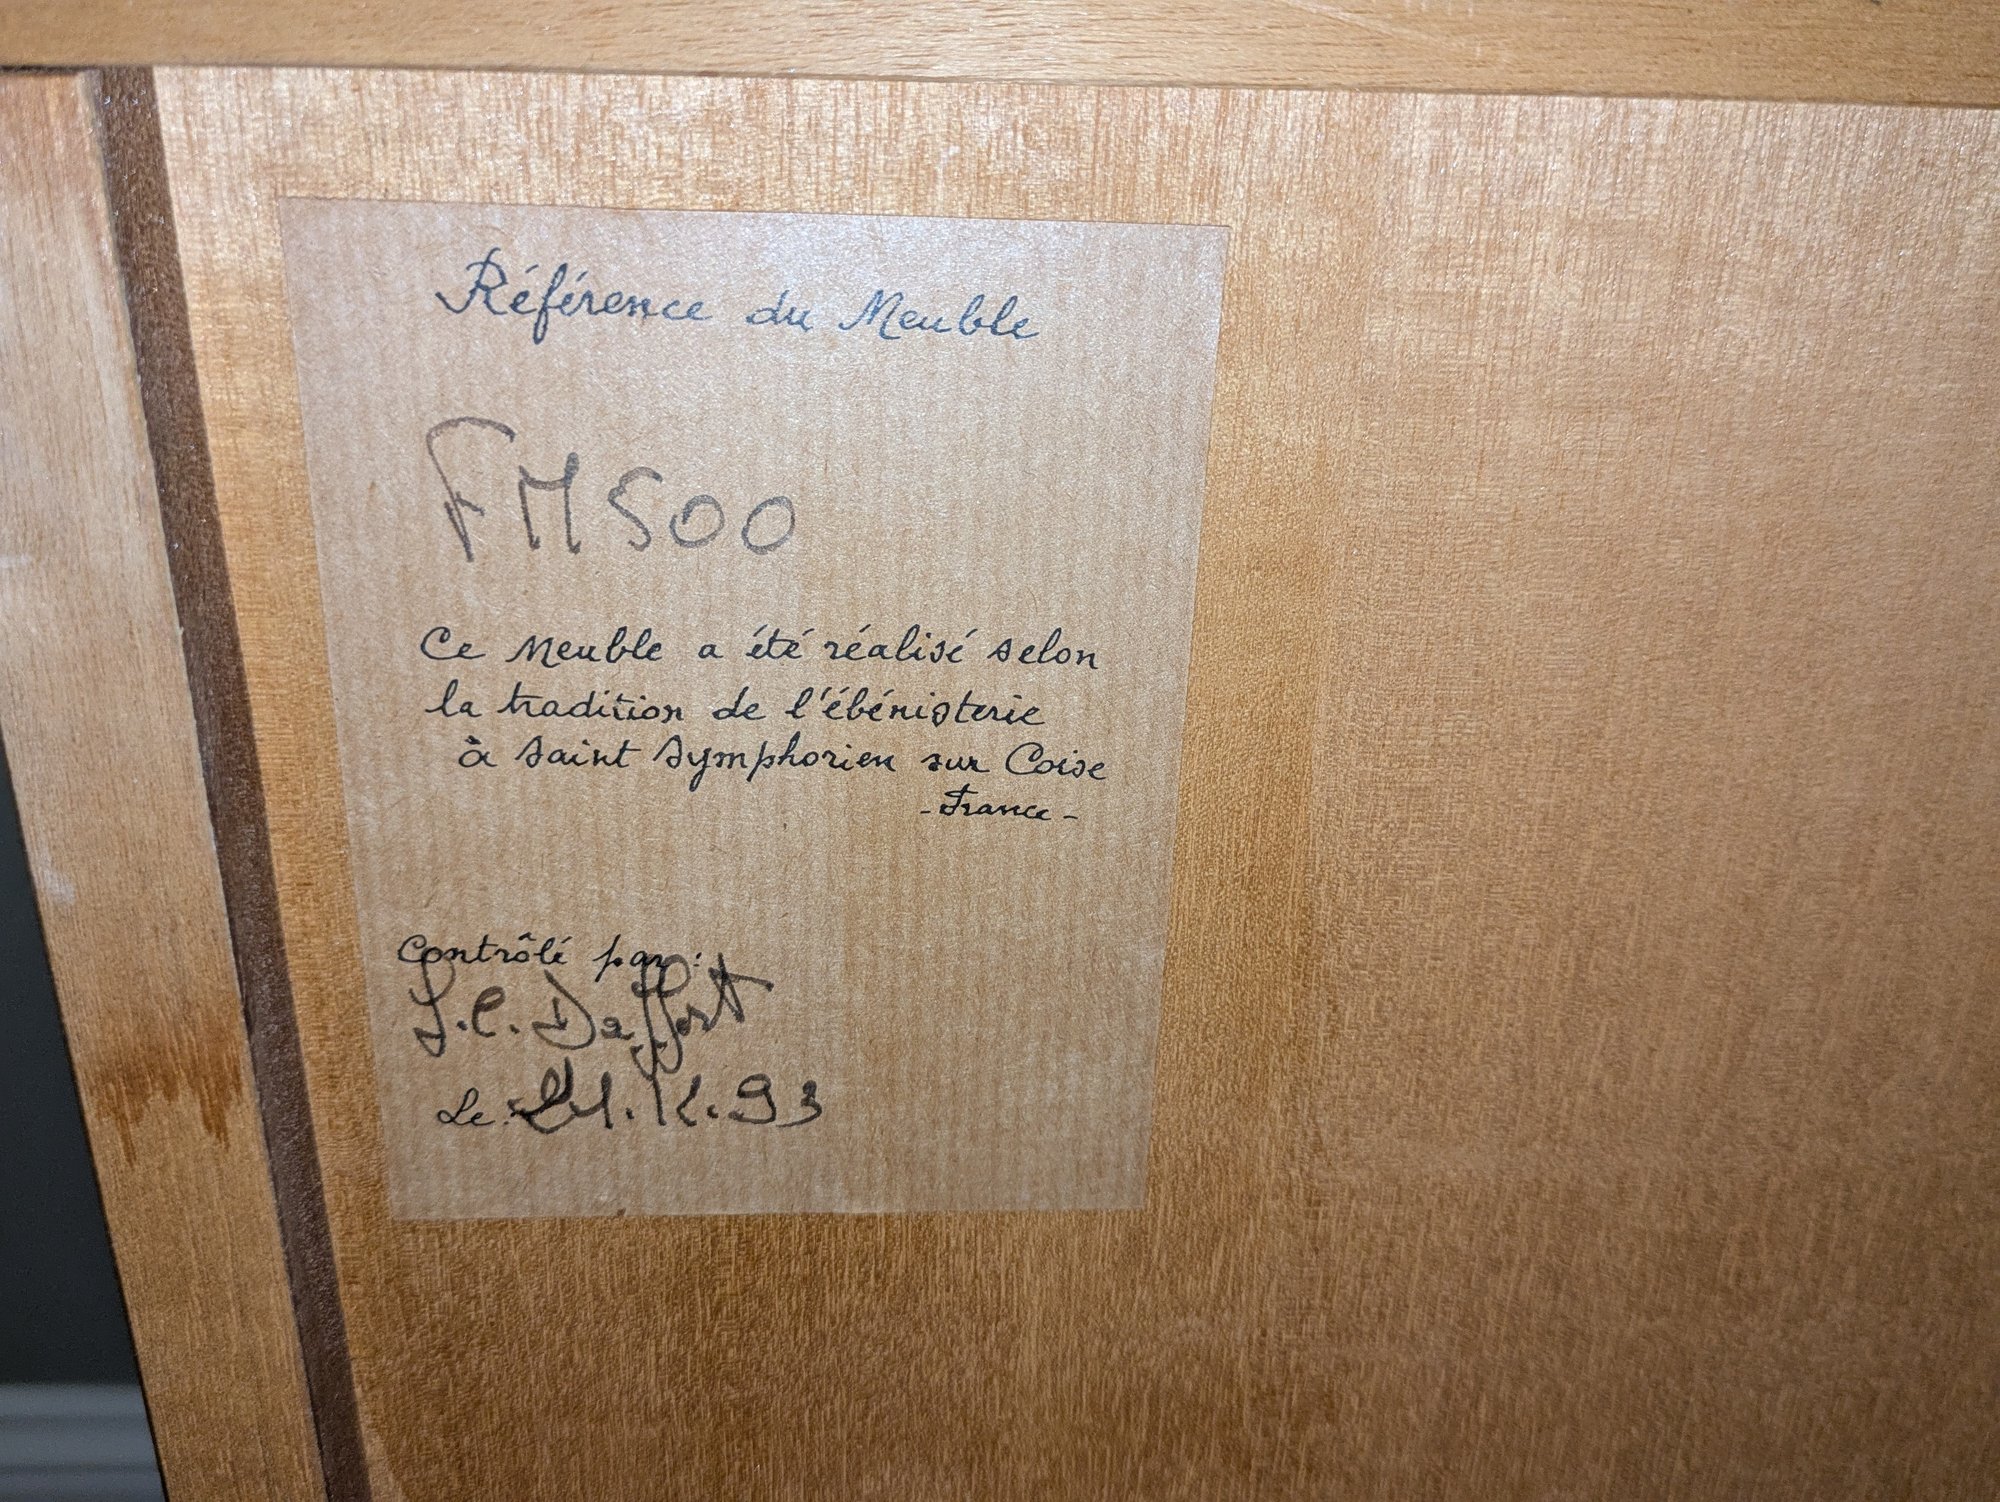 Référence du Meuble
FM500
Ce Meuble a été réalisé selon
la tradition de l'ébénisterie
à saint symphorien sur Coise
- France -
Contrôlé par :
Le: 21.12.93